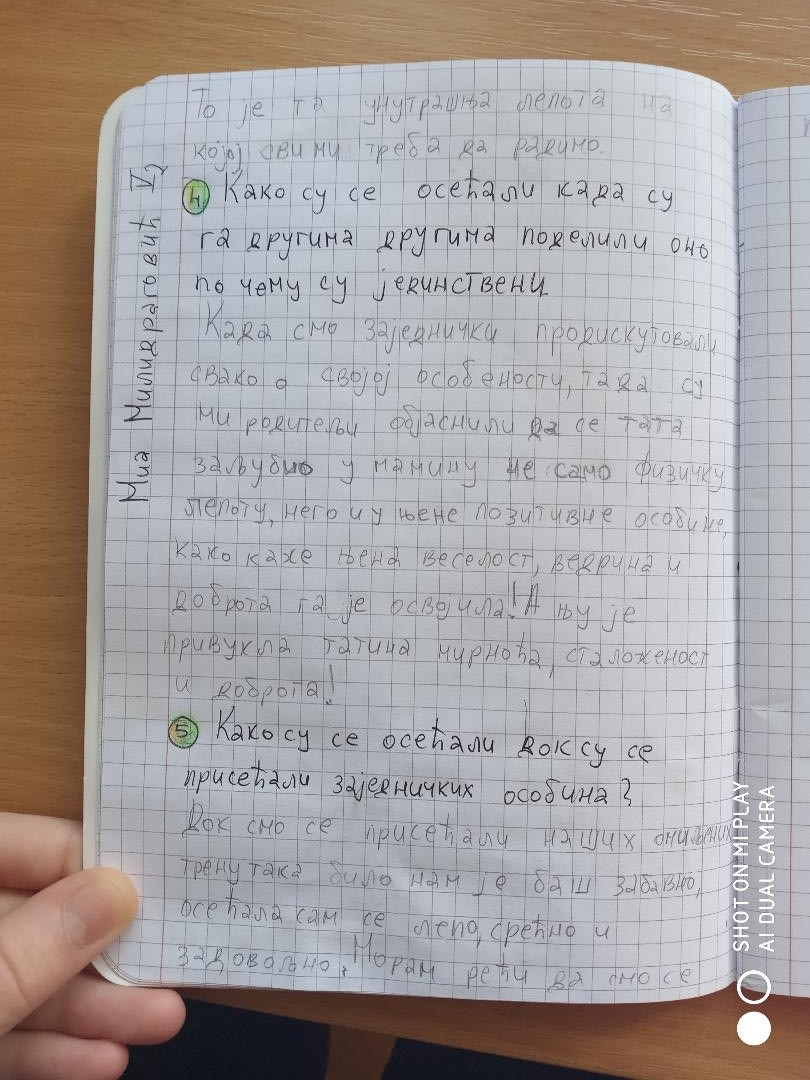 То је та унутрашња лепота на
којој сви ми треба да радимо.
4 Како су се осећали када су
га другима другима поделили оно
по чему су јединствени
Када смо заједнички продискутовали
свако о својој особености, тада су
ми родитељи објаснили да се тата
заљубио у мамину не само физичку
лепоту, него и у њене позитивне особине,
како каже њена веселост, ведрина и
доброта га је освојила! А њу је
привукла татина мирноћа, сталоженост
и доброта!
5 Како су се осећали док су се
присећали заједничких особина?
Док смо се присећали наших омиљених
тренутака било нам је баш забавно,
осећала сам се лепо, срећно и
задовољно. Морам рећи да смо се
Миа Милидраговић V2
SHOT ON MI PLAY
AI DUAL CAMERA